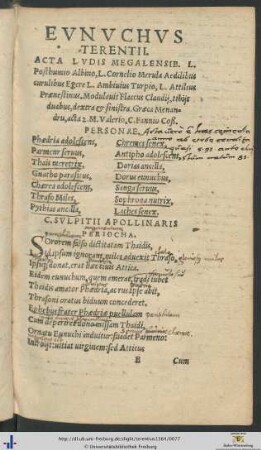 EVNVCHVS
TERENTII.
ACTA LVDIS MEGALENSIB. L.
Posthumio Albino, L. Cornelio Merula Aedilibus
curulibus Egere L. Ambiuius Turpio, L. Attilius
Prænestinus. Modulauit Flaccus Claudij, tibijs
duabus, dextra & sinistra. Græca Menan-
dru, acta 2. M. Valerio, C. Fannio Coss.
PERSONAE.
Phædria adolescens, Chremes senex,
Parmeno seruus, Antipho adolescens,
Thais meretrix, Dorias ancilla,
Gnatho parasitus, Dorus eunuchus,
Chærea adolescens, Sanga seruus,
Thraso Miles, Sophrona nutrix,
Pythias ancilla, Laches senex.
C. SVLPITII APOLLINARIS
PERIOCHA.
Sororem falso dictitatam Thaidis,
Id ipsum ignorans, miles aduexit Thraso,
Ipsiq; donat. erat hæc ciuis Attica.
Eidem eunuchum, quem emerat, tradi iubet
Thaidis amator Phædria, ac rus ipse abit,
Thrasoni oratus biduum concederet.
Ephebus frater Phædriæ puellulam
Cum deperiret dono missam Thaidi,
Ornatu Eunuchi induitur: suadet Parmeno:
Introijt: uitiat uirginem: sed Atticus
B Cum
http://dl.ub.uni-freiburg.de/diglit/terentius1560/0077
© Universitätsbibliothek Freiburg